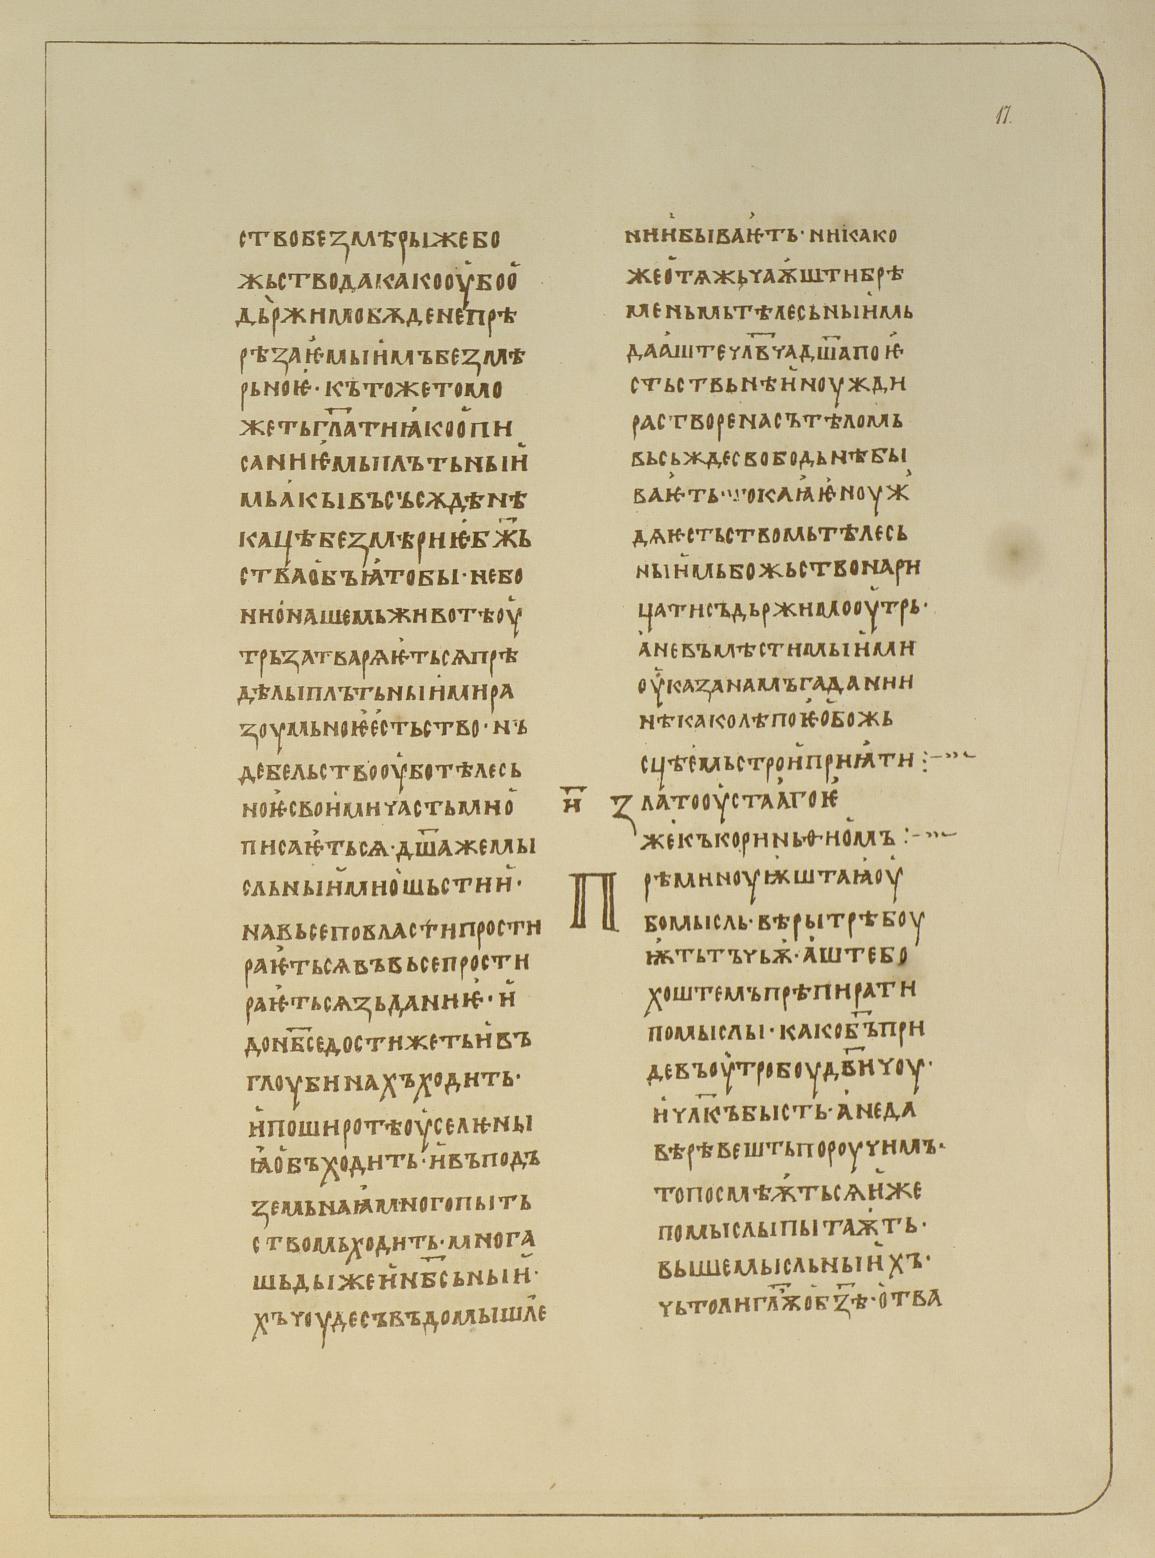 17.
ство без мѣры же бо
жьство да како оу҆бо о҆
дьржимо бѫдене прѣ
рѣзаѥмыимъ безмѣ
рьноѥ · къто же то мо
жеть гл҃ати ꙗко о҆пи
саниѥмь плътьныи
мь акы въ съсѫдѣ нѣ
кацѣ безмѣриѥ бж҃ь
ства об꙽ъꙗто бы · не бо
ни о нашемь животѣ оу҆
трь затварꙗѥтьсѧ прѣ
дѣлы плътьныими ра
зоумьноѥ ѥстьство · нъ
дебельство оу҆бо тѣлесь
ноѥ своими частьми о҆
писаѥтьсѧ · дш҃а же мы
сльныимь ошьстии ·
на вьсе по власти прости
раѥтьсѧ въ вьсе прости
раѥтьсѧ зьданиѥ · и
до нб҃се достижеть и въ
глоубинахъ ходить ·
и по широтѣ оу҆селѥны
ꙗ о҆бъходить · и въ подъ
земьнаꙗ многопыть
ствомь ходить · многа
шьды же и нб҃сьныи ·
хъ чоудесъ въ домышле
нии бываѥть · никако
же о҆тѧжьчаѫшти брѣ
меньмь тѣлесьныимь
да аште чл҃вча дш҃а по ѥ
стьствьнѣи ноужди
растворена съ тѣломь
вьсьжде свободьнѣ бы
ваѥть · то каꙗ ѥ ноуж
да ѥстьствомь тѣлесь
ныимь божьство нари
цати съдьржимо оу҆трь ·
а не въмѣстимыими
оу҆казанамъ гадании
нѣкако лѣпоѥ о҆ божь
сцѣѥмь строи приꙗти :~
и҃ златооу҆стааго ѥ
же къ коринь-ѳ-номъ :~
Прѣминоуѭштаꙗ оу҆
бо мысль · вѣры трѣбоу
ѭть тъчьѭ · аште бо
хоштемъ прѣпирати
помыслы · како бъ҃ при
де въ оу҆тробоу дв҃ичоу ·
и чл҃къ бысть · а не да
вѣрѣ вешть пороучимъ ·
то посмѣѭтьсѧ иже
помыслы пытаѭть ·
выше мысльныихъ ·
чьто ли гл҃ѭ о бз҃ѣ · отва